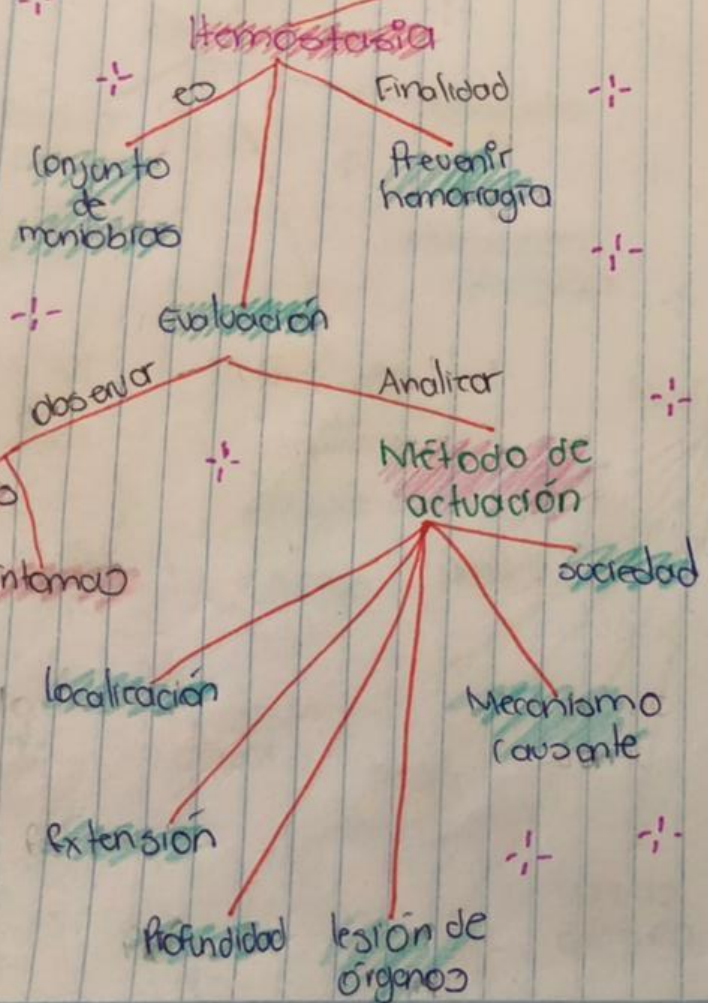 Hemostasia
es
Finalidad
Conjunto
de
maniobras
Prevenir
hemorragia
Evaluación
observar
Analizar
Método de
actuación
o
íntomas
sociedad
localización
Mecanismo
causante
Extensión
Profundidad
lesión de
órganos